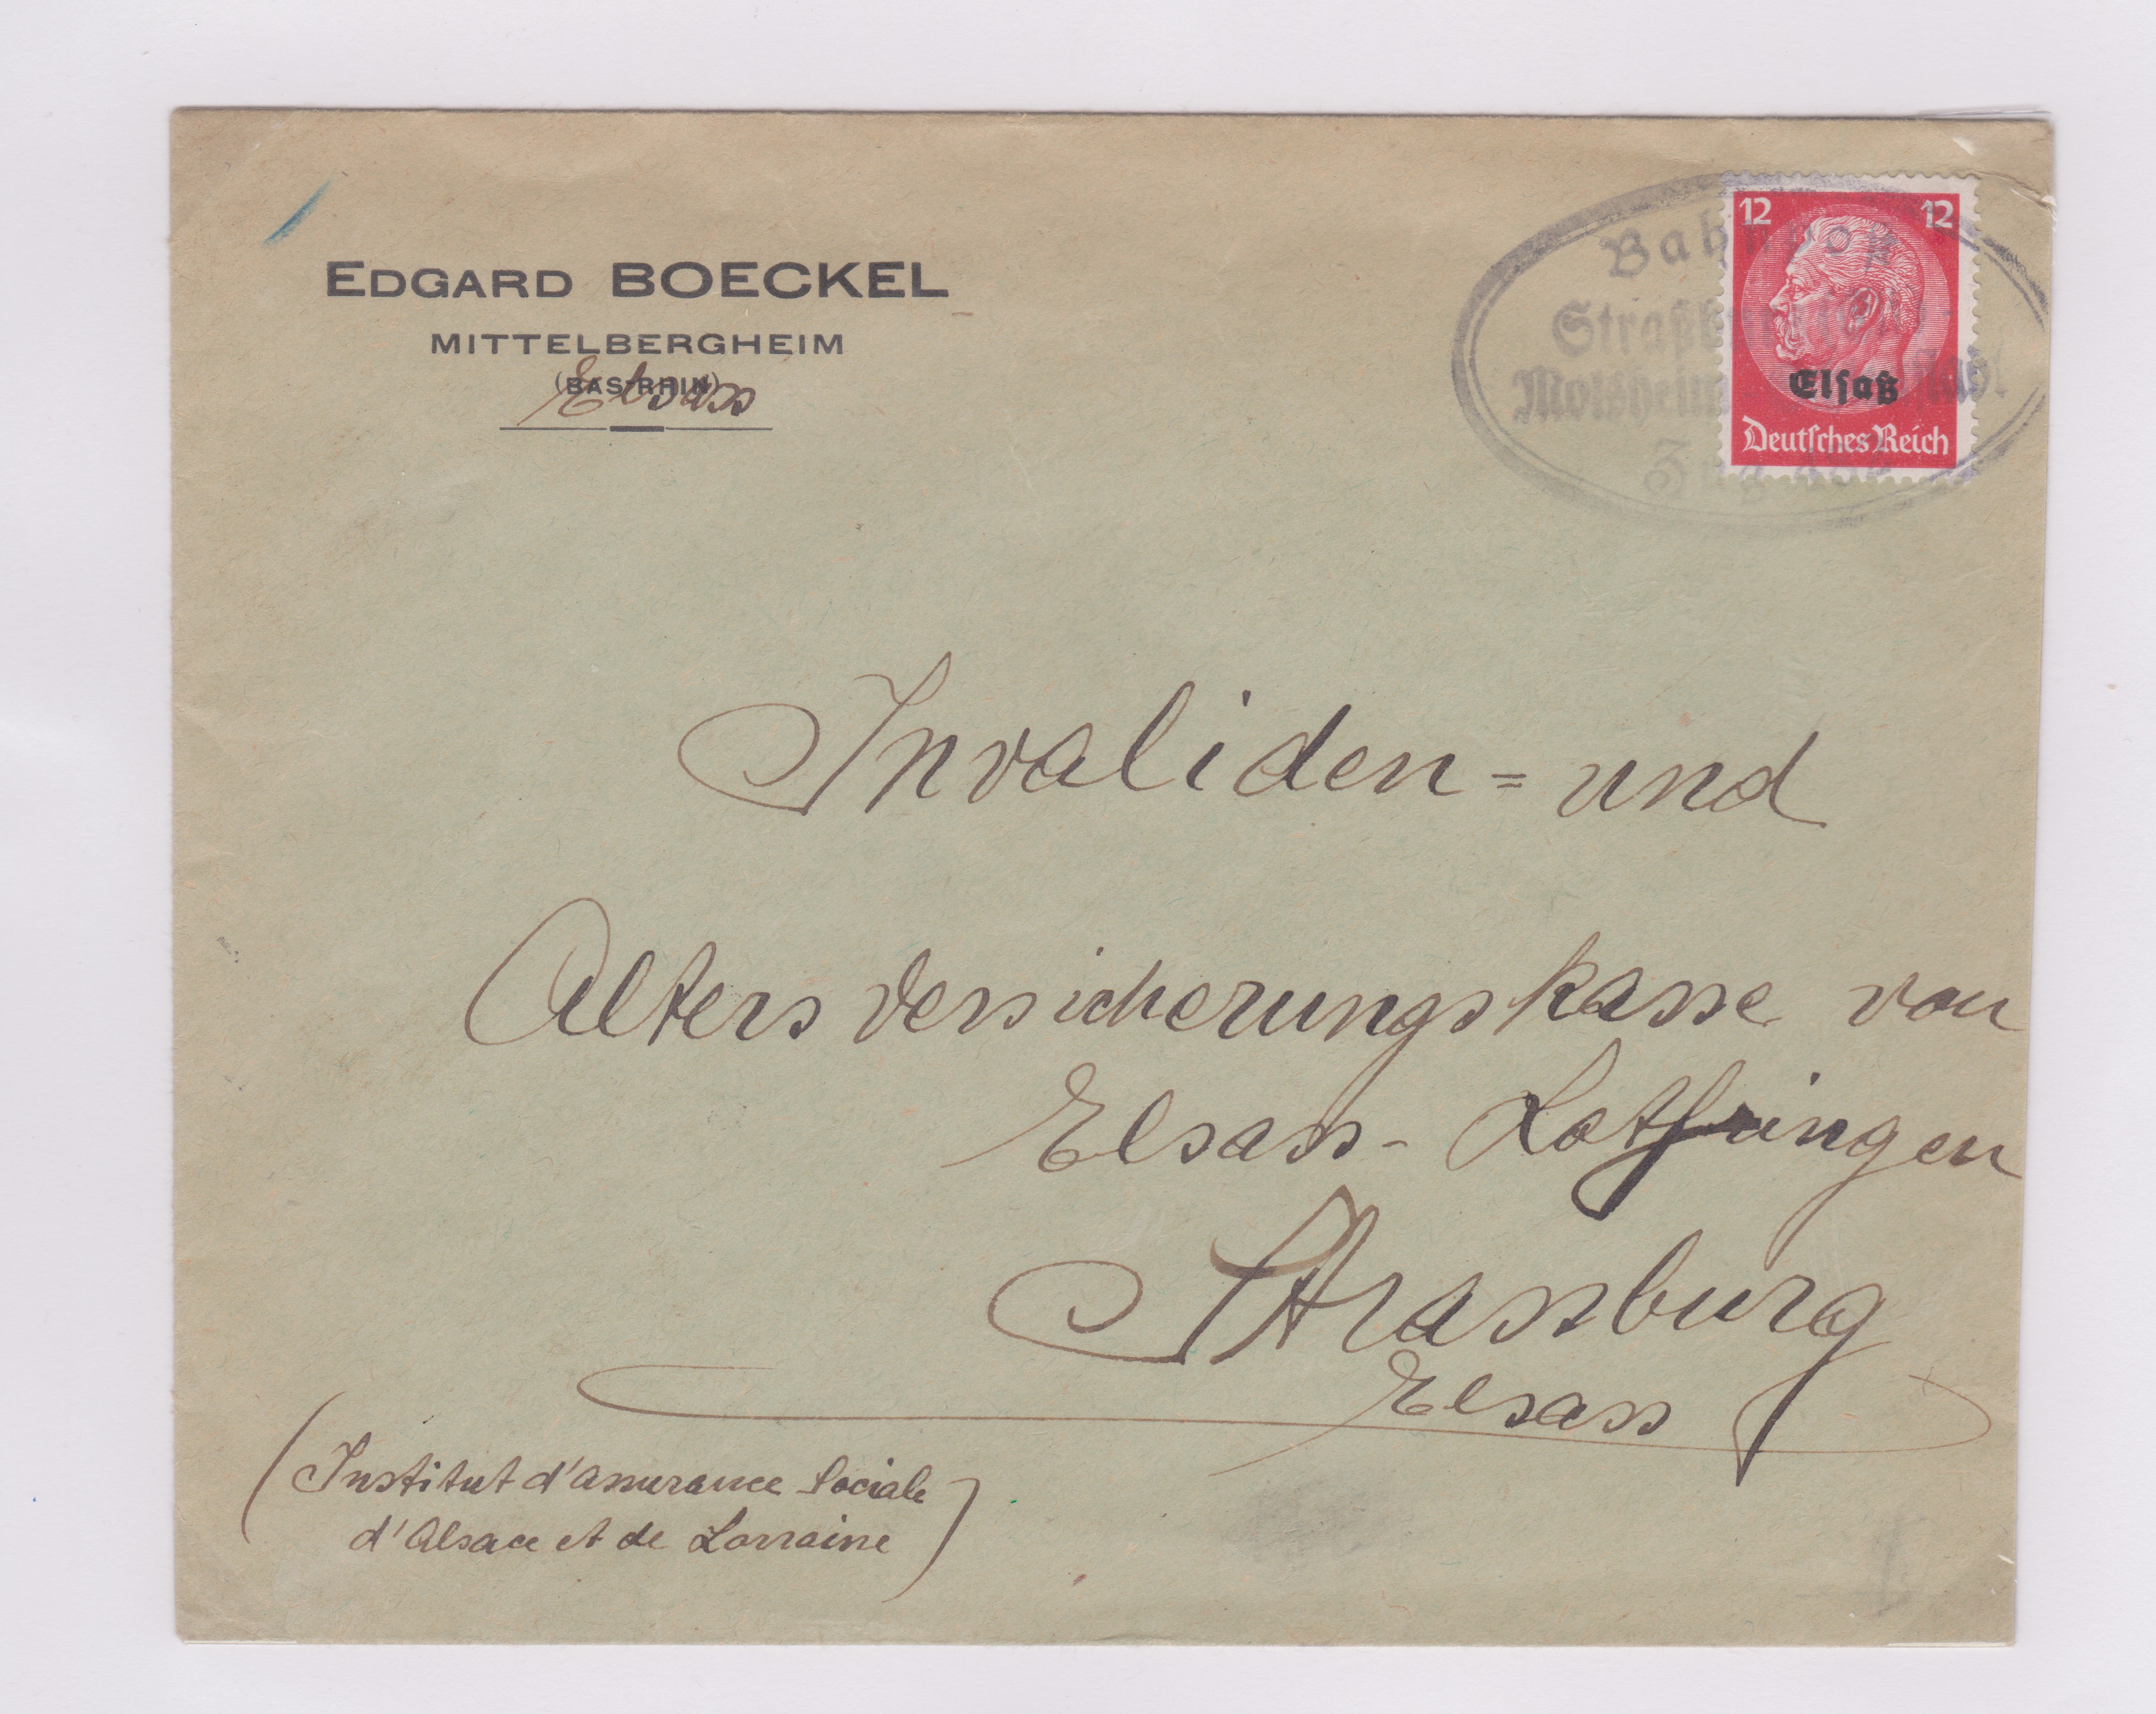 EDGARD BOECKEL
MITTELBERGHEIM
(BAS-RHIN)
Elsass
12 12
Elsaß
Deutsches Reich
Bahnpost
Molsheim
Zug
Invaliden= und
Altersversicherungskasse von
Elsass-Lothringen
Strassburg
Elsass
(Institut d'assurance Sociale
d'Alsace et de Lorraine)